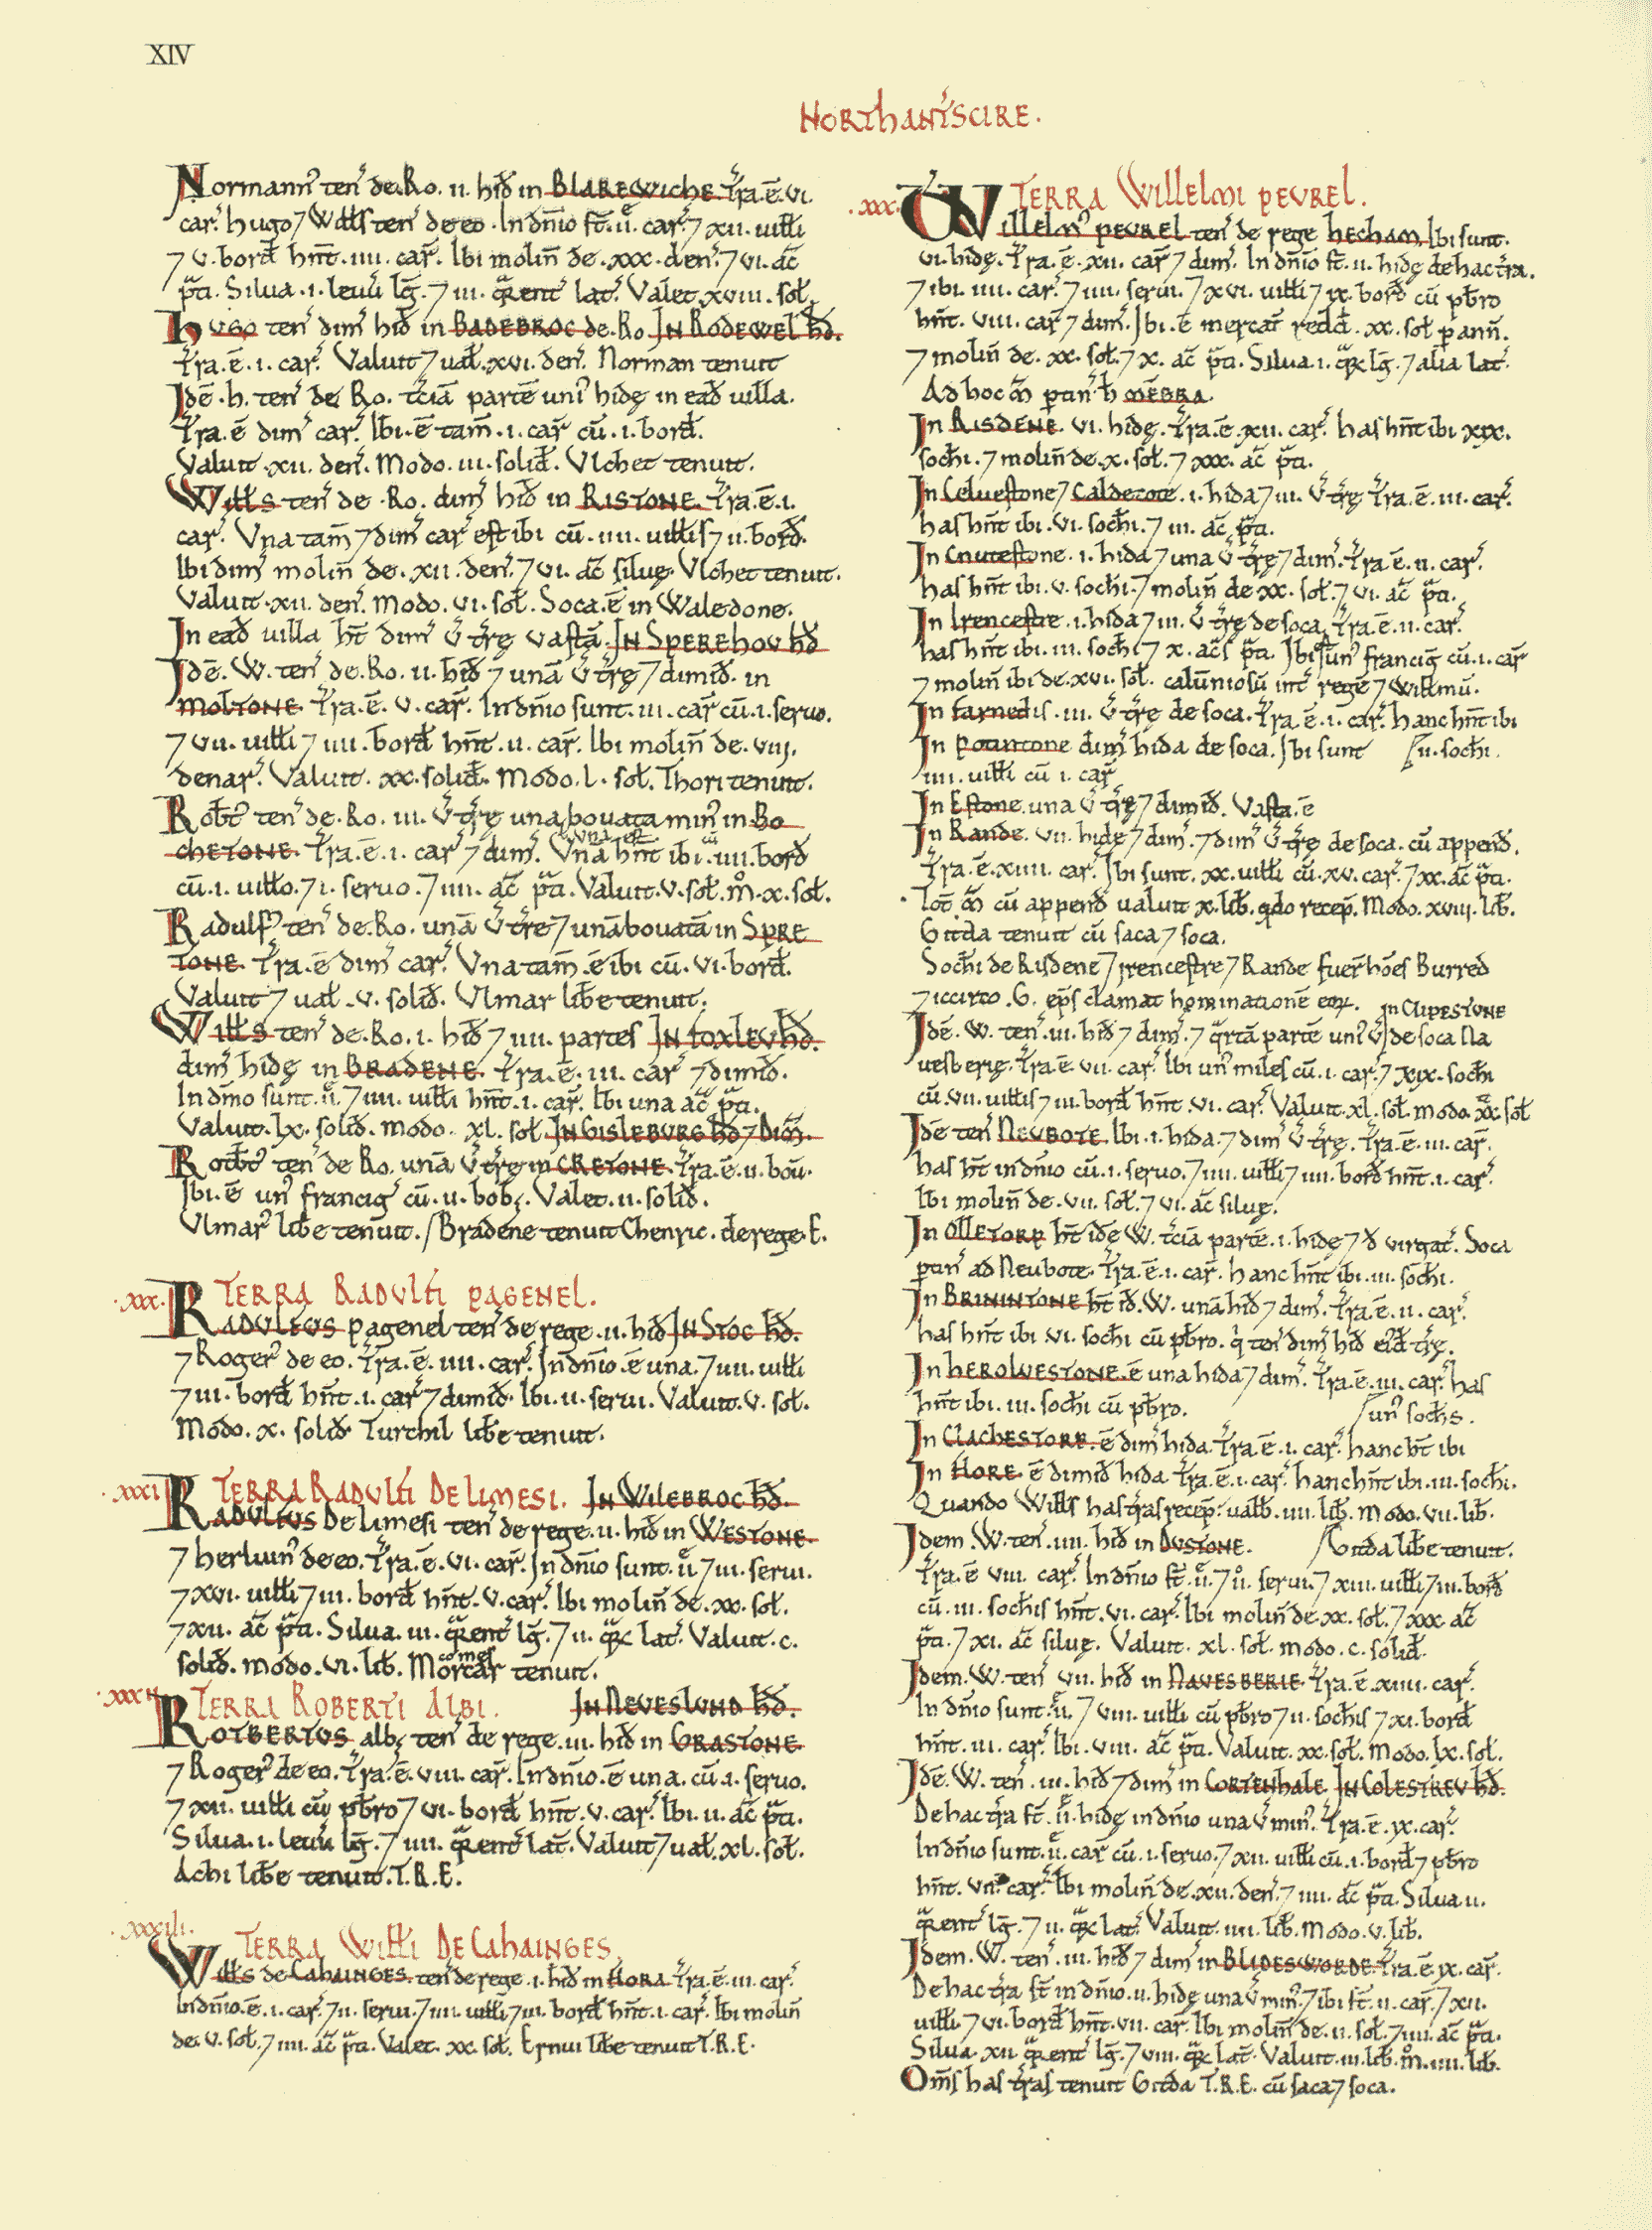 XIV
NORTHANT'SCIRE.
Normann' ten' de Ro. II. hid in BLAREWICHE. Tra. ē. VI.
car'. hugo 7 Wills ten' de eo. In dn̄io st̄. II. car'. 7 XII. uilli
7 V. bord hn̄t. IIII. car̄. Ibi molin̄ de. XXX. den'. 7 VI. ac̄
p̄ti. Silua. I. leuu lḡ. 7 III. qͣrent' lat'. Valet. XVIII. sol.
hugo ten' dim' hid in BADEBROC de. Ro. IN RODEWEL hd.
Tra. ē. I. car'. Valuit 7 ual. XVI. den'. Norman tenuit
Idē. h. ten' de Ro. tciā partē uni' hidę in ead uilla.
Tra. ē dim' car'. Ibi. ē tam̄. I. car̄ cū. I. bord.
Valuit. XII. den'. Modo. III. solid. Vlchet tenuit.
Wills ten' de. Ro. dim' hid in RISTONE. Tra. ē. I.
car'. Vna tam̄ 7 dim' car' est ibi cū. IIII. uillis 7 II. bord.
Ibi dim' molin̄ de. XII. den'. 7 VI. ac̄ siluę. Vlchet tenuit.
Valuit. XII. den'. Modo. VI. sol. Soca. ē in Waledone.
In ead uilla ht̄ dim' v̄ træ vastā. IN SPEREHOU hd
Idē. W. ten' de. Ro. II. hid 7 unā v̄ træ 7 dimid. in
MOLTONE. Tra. ē. V. car̄. In dn̄io sunt. III. car̄ cū. I. seruo.
7 VII. uilli 7 IIII. bord hn̄t. II. car̄. Ibi molin̄ de. VIII.
denar'. Valuit. XX. solid. Modo. L. sol. Thori tenuit.
Robt' ten' de. Ro. III. v̄ træ una bouata min' in BO
una est cū
CHETONE. Tra. ē. I. car' 7 dim'. Vnā hn̄t ibi. IIII. bord
cū. I. uillo. 7 I. seruo. 7 IIII. ac̄ p̄ti. Valuit. V. sol. m̊. X. sol.
Radulf' ten' de. Ro. unā v̄ træ 7 unā bouatā in SPRE
TONE. Tra. ē dim' car̄. Vna tam̄. ē ibi cū. VI. bord.
Valuit 7 ual. V. solid. Vlmar libe tenuit.
Wills ten' de. Ro. I. hid 7 IIII. partes IN FOXLEU hd.
dim' hidę in BRADENE. Tra. ē. III. car' 7 dimid.
In dn̄io sunt. II. 7 IIII. uilli hn̄t. I. car̄. Ibi una ac̄ p̄ti.
Valuit. LX. solid. modo. XL. sol. IN GISLEBURG hd 7 Dim̄.
Rotbt' ten' de Ro. unā v̄ træ in CRETONE. Tra. ē. II. bou'.
Ibi. ē un' francig' cū. II. bob;. Valet. II. solid.
Vlmar' libe tenuit. / Bradene tenuit Chenric. de rege. E.
.XXX. TERRA RADULFI PAGENEL.
RADULFUS pagenel ten' de rege. II. hid IN STOC hd.
7 Roger' de eo. Tra. ē. IIII. car̄. In dn̄io. ē una. 7 IIII. uilli
7 III. bord hn̄t. I. car̄ 7 dimid. Ibi. II. serui. Valuit. V. sol.
Modo. X. solid. Turchil libe tenuit.
.XXXI TERRA RADULFI DE LIMESI. IN WILEBROC hd.
RADULFUS De limesi ten' de rege. II. hid in WESTONE.
7 herluin' de eo. Tra. ē. VI. car̄. In dn̄io sunt. II. 7 III. serui.
7 XVI. uilli 7 III. bord hn̄t. V. car̄. Ibi molin̄ de. XX. sol.
7 XII. ac̄ p̄ti. Silua. III. qͣrent' lḡ. 7 II. qͣr̄ lat'. Valuit. C.
comes
solid. modo. VI. lib. Morcar tenuit.
.XXXII TERRA ROBERTI ALBI. IN NEVESLUND hd.
ROTBERTUS alb; ten' de rege. III. hid in GRASTONE
7 Roger' de eo. Tra. ē. VIII. car̄. In dn̄io. ē una. cū. I. seruo.
7 XII. uilli cū pbro 7 VI. bord hn̄t. V. car̄. Ibi. II. ac̄ p̄ti.
Silua. I. leuu lḡ. 7 IIII. qͣrent' lat̄. Valuit 7 ual. XL. sol.
Achi libe tenuit. T.R.E.
.XXXIII. TERRA WILLI DE CAHAINGES.
Wills de CAHAINGES. ten' de rege. I. hid in FLORA. Tra. ē. III. car'.
In dn̄io. ē. I. car'. 7 II. serui. 7 IIII. uilli 7 III. bord hn̄t. I. car̄. Ibi molin̄
de. V. sol. 7 IIII. ac̄ p̄ti. Valet. XX. sol. Ernui libe tenuit T.R.E.
.XXX. TERRA WILLELMI PEVREL.
Willelm' PEVREL ten' de rege HECHAM. Ibi sunt.
VI. hidę. Tra. ē. XII. car̄ 7 dim'. In dn̄io st̄. II. hidę de hac tra.
7 ibi. IIII. car'. 7 IIII. serui. 7 XVI. uilli 7 IX. bord cū pbro
hn̄t. VIII. car̄ 7 dim'. Ibi. ē mercat̄ redd. XX. sol p ann̄.
7 molin̄ de. XX. sol. 7 X. ac̄ p̄ti. Silua. I. qͣr̄ lḡ. 7 alia lat'.
Ad hoc m̄ ptin' h MEBRA.
In RISDENE. VI. hidę. Tra. ē. XII. car'. has hn̄t ibi XIX.
sochi. 7 molin̄ de. X. sol. 7 XXX. ac̄ p̄ti.
In Celuestone 7 Caldecote. I. hida 7 III. v̄ træ Tra. ē. III. car̄.
has hn̄t ibi. VI. sochi. 7 III. ac̄ p̄ti.
In Cnutestone. I. hida 7 una v̄ træ 7 dim'. Tra. ē. II. car'.
has hn̄t ibi. V. sochi. 7 molin̄ de XX. sol. 7 VI. ac̄ p̄ti.
In Irencestre. I. hida 7 III. v̄ træ de soca. Tra. ē. II. car̄.
has hn̄t ibi. III. sochi 7 X. ac̄s p̄ti. Ibi est un' francig̅ cū. I. car̄
7 molin̄ ibi de. XVI. sol. calūniosū int' regē 7 Willmū.
In Farnedis. III. v̄ træ de soca. Tra. ē. I. car̄. hanc hn̄t ibi
In Potintone dim' hida de soca. Ibi sunt / II. sochi.
IIII. uilli cū I. car̄
In Estone. una v̄ træ 7 dimid. Vasta. ē
In Rande. VII. hidę 7 dim'. 7 dim' v̄ træ de soca. cū append.
Tra. ē. XIIII. car'. Ibi sunt. XX. uilli cū. XV. car̄. 7 XX. ac̄ p̄ti.
. Tot̄ m̄ cū append ualuit X. lib. qdo recep̄. Modo. XVIII. lib.
Gitda tenuit cū saca 7 soca.
Sochi de Risdene 7 Irencestre 7 Rande fuer̄ hōes Burred
7 iccirco. G. ep̄s clamat hominationē eoꝝ. In CLIPESTONE
Idē. W. ten'. III. hid 7 dim'. 7 qͣrtā partē uni' v̄ / de soca Na
uesberię. Tra. ē. VII. car'. Ibi un' miles cū. I. car'. 7 XIX. sochi
cū. VII. uillis 7 III. bord hn̄t. VI. car'. Valuit. XL. sol. modo. XX. sol
Idē ten' NEUBOTE. Ibi. I. hida. 7 dim' v̄ træ. Tra. ē. III. car̄.
has ht̄ in dn̄io cū. I. seruo. 7 IIII. uilli 7 IIII. bord hn̄t. I. car'.
Ibi molin̄ de. VII. sol. 7 VI. ac̄ siluę.
In OLLETORP ht̄ idē W. tciā partē. I. hidę 7 d virgat'. Soca
ptin' ad Neubote. Tra. ē. I. car̄. hanc hn̄t ibi. III. sochi.
In BRININTONE ht̄ id. W. unā hid 7 dim'. Tra. ē. II. car'.
has hn̄t ibi. VI. sochi cū pbro. q' ten' dim' hid eid træ.
In HEROLVESTONE. ē una hida 7 dim'. Tra. ē. III. car'. has
hn̄t ibi. III. sochi cū pbro. / un' sochs.
In CLACHESTORP. ē dim' hida. Tra. ē. I. car'. hanc ht̄ ibi
In FLORE. ē dimid hida Tra. ē. I. car'. hanc hn̄t ibi. III. sochi.
Quando Wills has tras recep̄. ualb. IIII. lib. Modo. VII. lib.
Idem. W. ten'. IIII. hid in DUSTONE. / Gitda libe tenuit.
Tra. ē VIII. car̄. In dn̄io st̄. II. 7 II. serui. 7 XIII. uilli 7 III. bord
cū. III. sochis hn̄t. VI. car'. Ibi molin̄ de. XX. sol. 7 XXX ac̄
p̄ti. 7 XI. ac̄ siluę. Valuit. XL. sol. modo. C. solid.
Idem. W. ten' VII. hid in NAVESBERIE. Tra. ē. XIIII. car'.
In dn̄io sunt. II. 7 VIII. uilli cū pbro 7 II. sochis 7 XI. bord
hn̄t. III. car'. Ibi. VIII. ac̄ p̄ti. Valuit. XX. sol. Modo. LX. sol.
Idē. W. ten'. III. hid 7 dim' in CORTENHALE. IN COLESTREU hd.
De hac tra st̄. II. hidę in dn̄io una v̄ min'. Tra. ē. IX. car'.
In dn̄io sunt. II. car̄ cū. I. seruo. 7 XII. uilli cū. I. bord 7 pbro
hn̄t. VII. car'. Ibi molin̄ de. XII. den'. 7 IIII. ac̄ p̄ti. Silua II.
qͣrent' lḡ. 7 II. qͣr̄ lat'. Valuit. IIII. lib. Modo. V. lib.
Idem. W. ten'. III. hid 7 dim' in BLIDESWORDE. Tra. ē IX. car̄.
De hac tra st̄ in dn̄io. II. hidę una v̄ min'. 7 ibi st̄. II. car̄. 7 XII.
uilli. 7 VI. bord hn̄t. VII. car̄. Ibi molin̄ de. II. sol. 7 IIII. ac̄ p̄ti.
Silua. XII qͣrent' lḡ. 7 VIII. qͣr̄ lat̄. Valuit. III. lib. m̊. IIII. lib.
Om̄s has tras tenuit Gitda T.R.E. cū saca 7 soca.